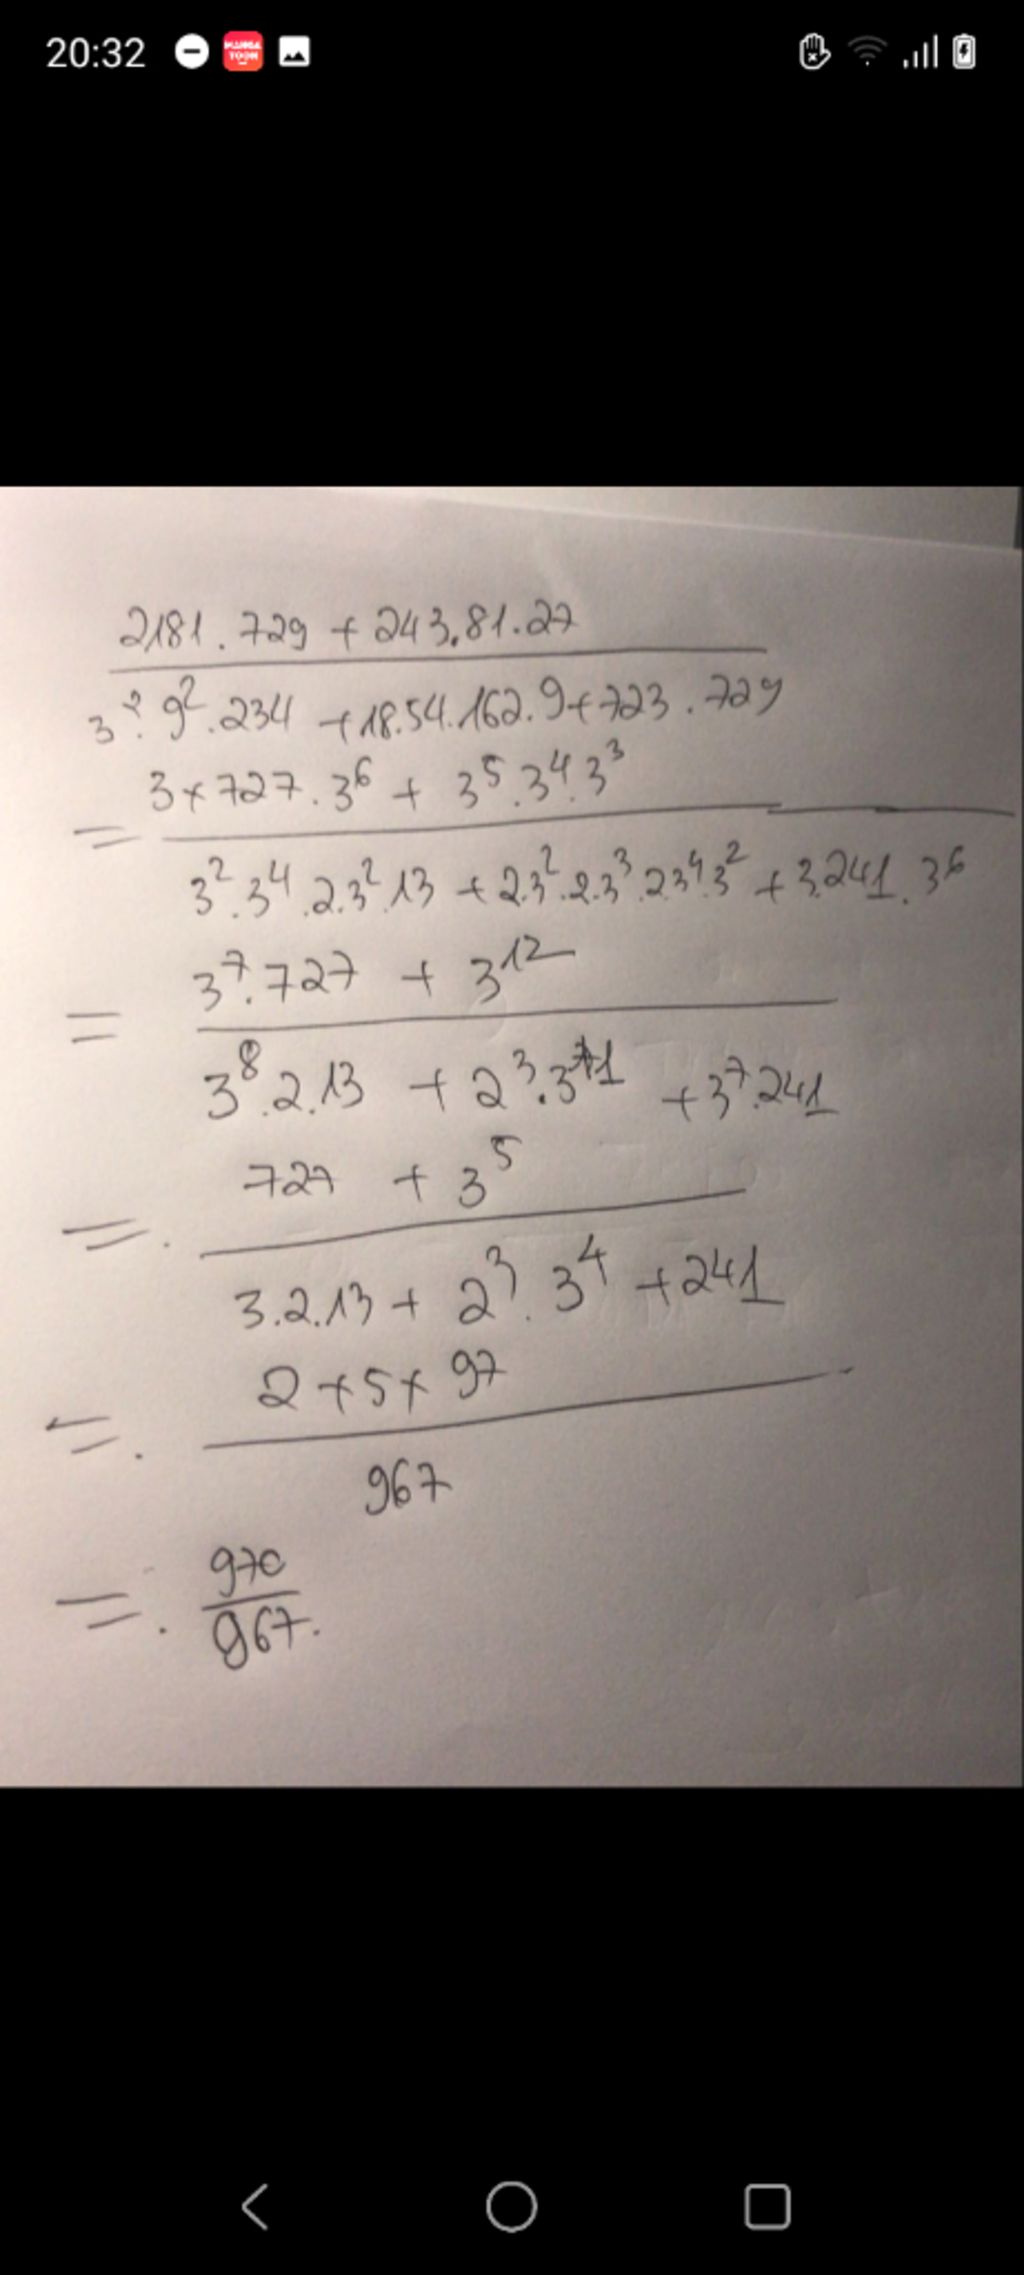 20:32
MANGA TOON
2181.729 + 243.81.27
3². 9².234 +18.54.162.9+723.729
3×727.3⁶ + 3⁵.3⁴.3³
= 3².3⁴.2.3².13 +2.3².2.3³.2.3⁴.3² +3.241.3⁶
3⁷.727 + 3¹²
= 3⁸.2.13 +2³.3¹¹ +3⁷.241
727 + 3⁵
=. 3.2.13+ 2³.3⁴ +241
2×5×97
=. 967
970
=. 967.